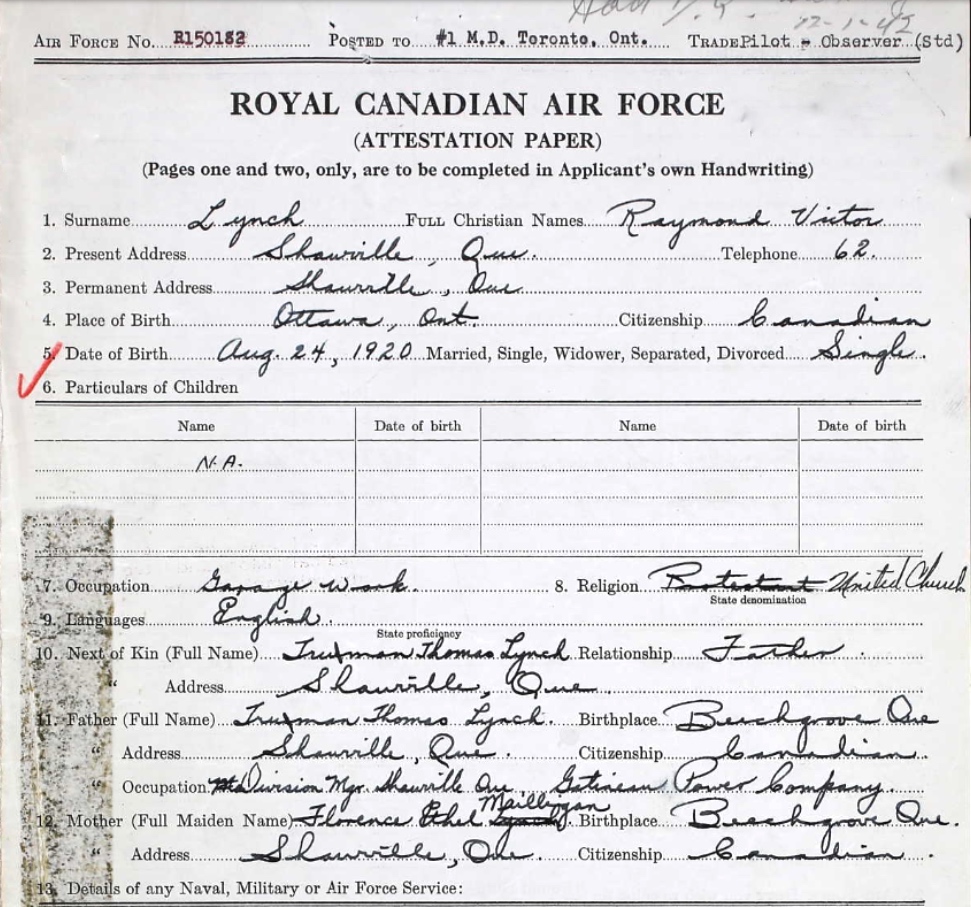 22-1-42
AIR FORCE No. R150183 POSTED TO #1 M.D. Toronto, Ont. TRADE Pilot - Observer (Std)
ROYAL CANADIAN AIR FORCE
(ATTESTATION PAPER)
(Pages one and two, only, are to be completed in Applicant's own Handwriting)
1. Surname Lynch FULL Christian Names Raymond Victor
2. Present Address Shawville, Que. Telephone 62.
3. Permanent Address Shawville, Que
4. Place of Birth Ottawa, Ont. Citizenship Canadian
5. Date of Birth Aug. 24, 1920 Married, Single, Widower, Separated, Divorced Single.
6. Particulars of Children
Name Date of birth Name Date of birth
N.A.
7. Occupation Garage work. 8. Religion Protestant United Church
State denomination
9. Languages English.
State proficiency
10. Next of Kin (Full Name) Truman Thomas Lynch Relationship Father.
" Address Shawville, Que.
11. Father (Full Name) Truman Thomas Lynch. Birthplace Beechgrove Que
" Address Shawville, Que. Citizenship Canadian.
" Occupation Division Mgr. Shawville Que Gatineau Power Company.
12. Mother (Full Maiden Name) Florence Ethel Lynch Birthplace Beechgrove Que.
" Address Shawville, Que. Citizenship Canadian.
13. Details of any Naval, Military or Air Force Service: